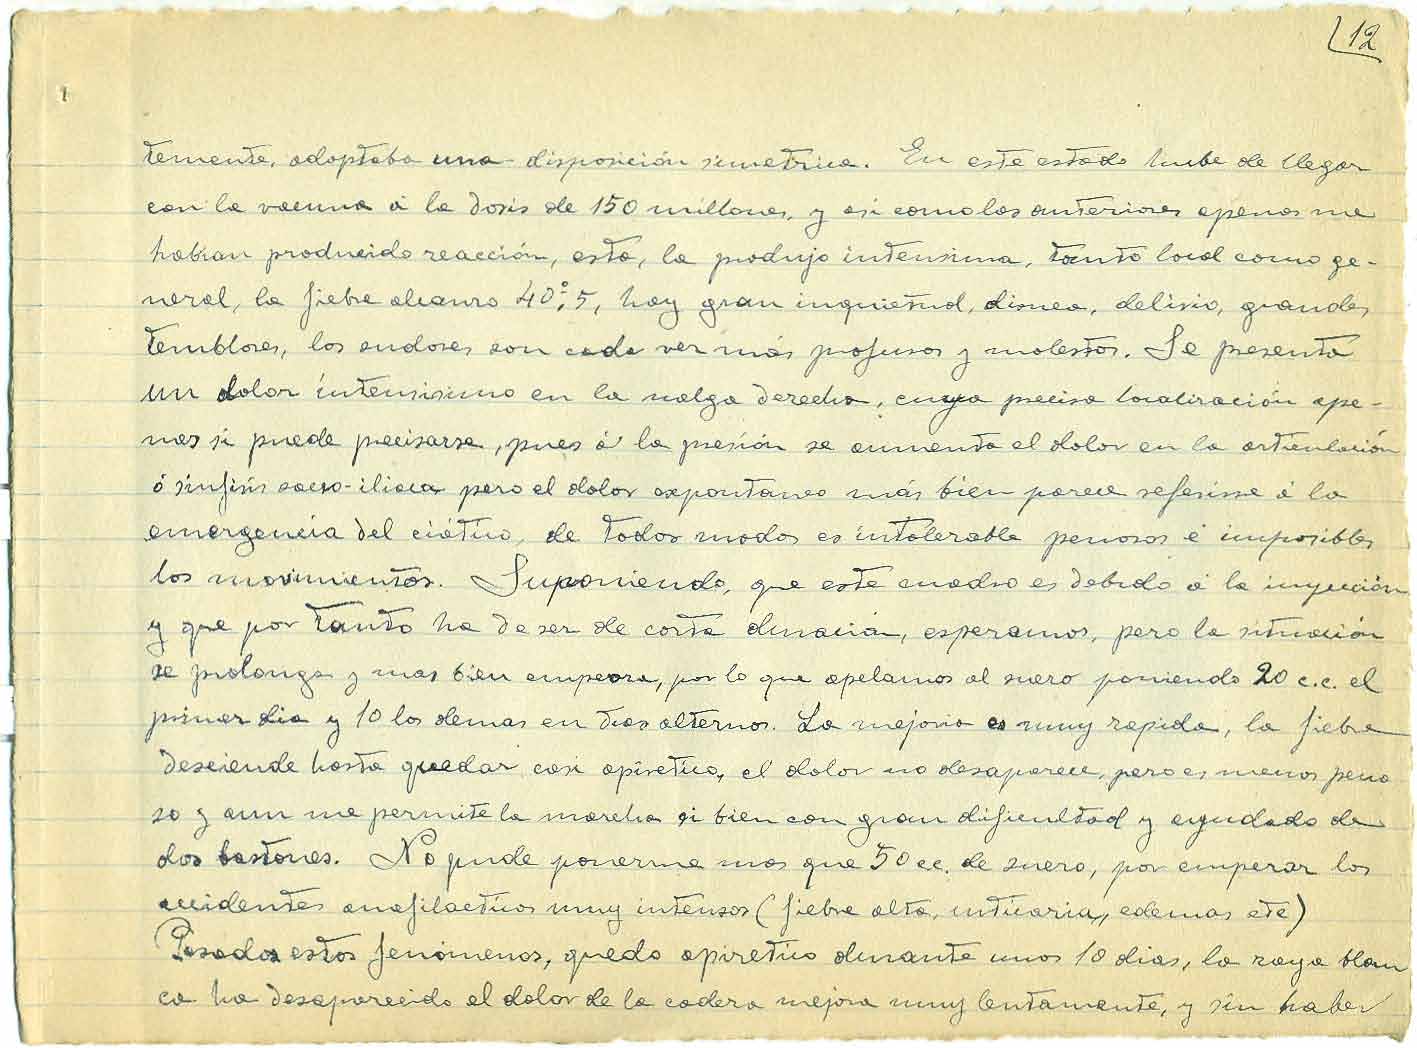 12
temente, adoptaba una disposición simetrica. En este estado hube de llegar
con la vacuna á la dosis de 150 millones, y asi como las anteriores apenas me
habian producido reacción, esta, la produjo intensisima, tanto local como ge-
neral, la fiebre alcanzo 40º,5, hay gran inquietud, disnea, delirio, grandes
temblores, los sudores son cada vez más profusos y molestos. Se presenta
un dolor intensisimo en la nalga derecha, cuya precisa localización ape-
nas si puede precisarse, pues á la presión se aumenta el dolor en la articulación
ó sínfisis sacro-iliaca pero el dolor expontaneo más bien parece referirse á la
emergencia del ciático, de todos modos es intolerable penosos é imposibles
los movimientos. Suponiendo, que este cuadro es debido á la inyección
y que por tanto ha de ser de corta duración, esperamos, pero la situación
se prolonga y mas bien empeora, por lo que apelamos al suero poniendo 20 c.c. el
primer dia y 10 los demas en dias alternos. La mejoria es muy rapida, la fiebre
desciende hasta quedar casi apiretico, el dolor no desaparece, pero es menos peno
so y aun me permite la marcha si bien con gran dificultad y ayudado de
dos bastones. No pude ponerme mas que 50 cc. de suero, por empezar los
accidentes anafilacticos muy intensos (fiebre alta, urticaria, edemas etc)
Pasados estos fenómenos, quedo apiretico durante unos 10 dias, la raya blan
ca ha desaparecido el dolor de la cadera mejora muy lentamente, y sin haber